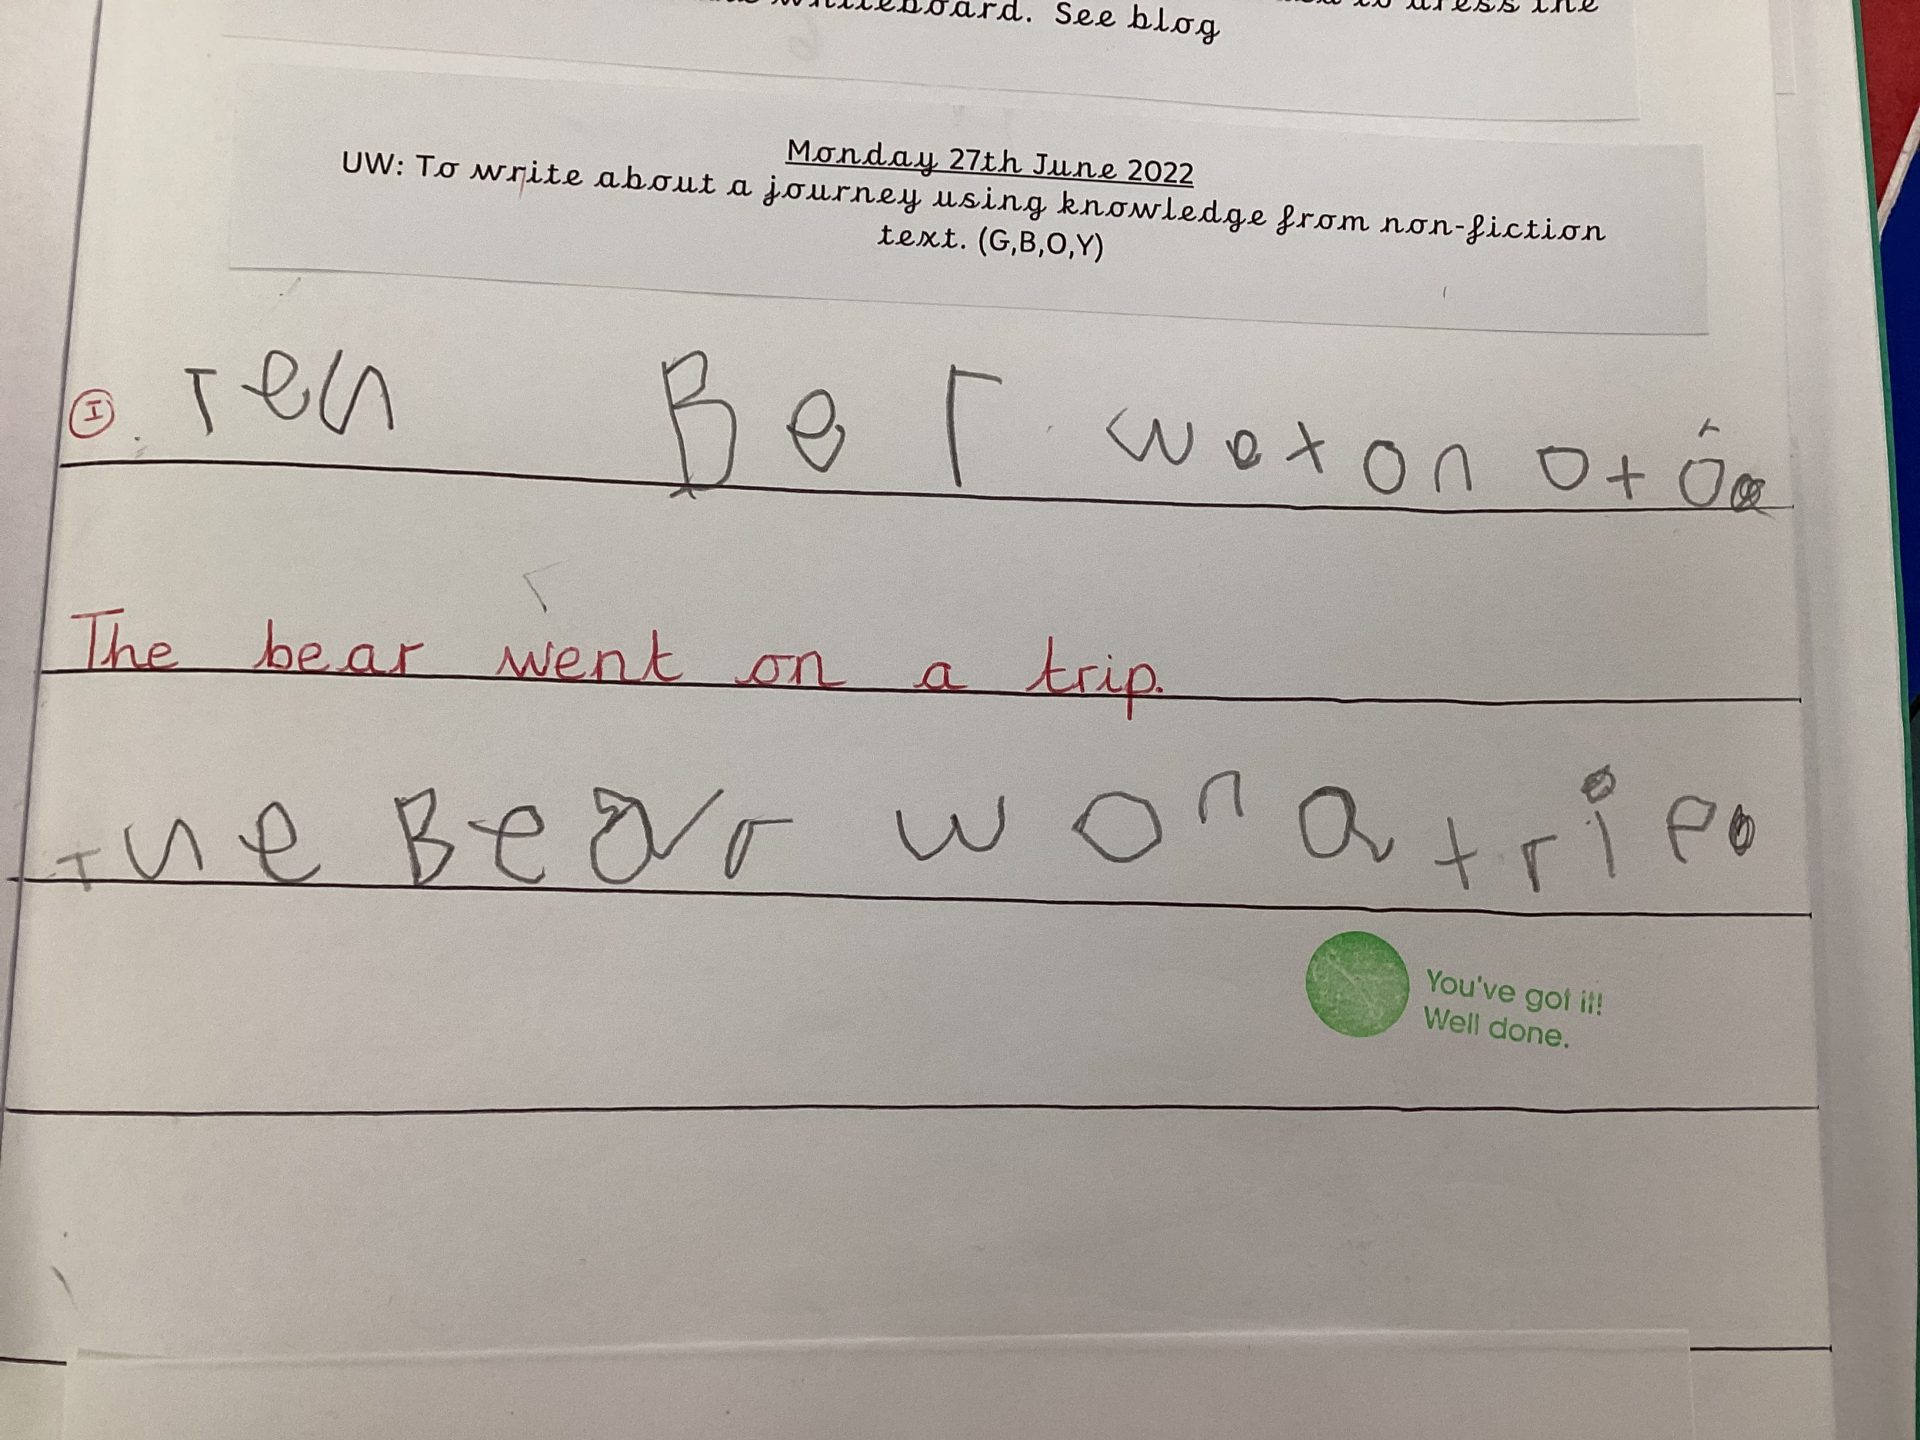 whiteboard. See blog
dress the
Monday 27th June 2022
UW: To write about a journey using knowledge from non-fiction
text. (G,B,O,Y)
I Ten Ber wet on o t
The bear went on a trip.
The Bear w on a trip
You've got it!
Well done.